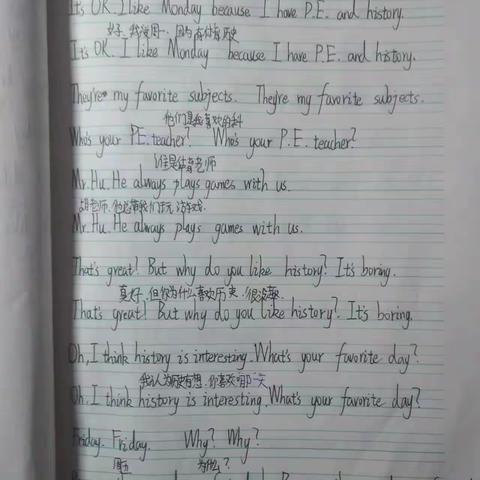 It's OK. I like Monday because I have P.E. and history.
好，我
It's OK. I like Monday because I have P.E. and history.
They're my favorite subjects. They're my favorite subjects.
他们是我喜欢的科
Who's your P.E. teacher? Who's your P.E. teacher?
谁是体育老师
Mr. Hu. He always plays games with us.
胡老师.他总 我们玩游戏.
Mr. Hu. He always plays games with us.
That's great! But why do you like history? It's boring.
真好，但你为什么喜欢历史？很没趣.
That's great! But why do you like history? It's boring.
Oh, I think history is interesting. What's your favorite day?
我认为历史有 .你喜欢哪一天
Oh. I think history is interesting. What's your favorite day?
Friday. Friday. Why? Why?
周五 为什么？